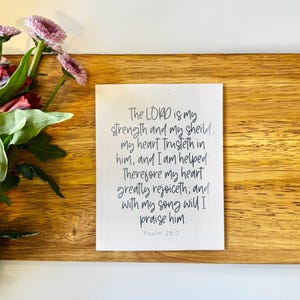 The LORD is my
strength and my sheild,
my heart trusteth in
him, and I am helped
therefore my heart
greatly rejoiceth; and
with my song will I
praise him.
Psalm 28:7